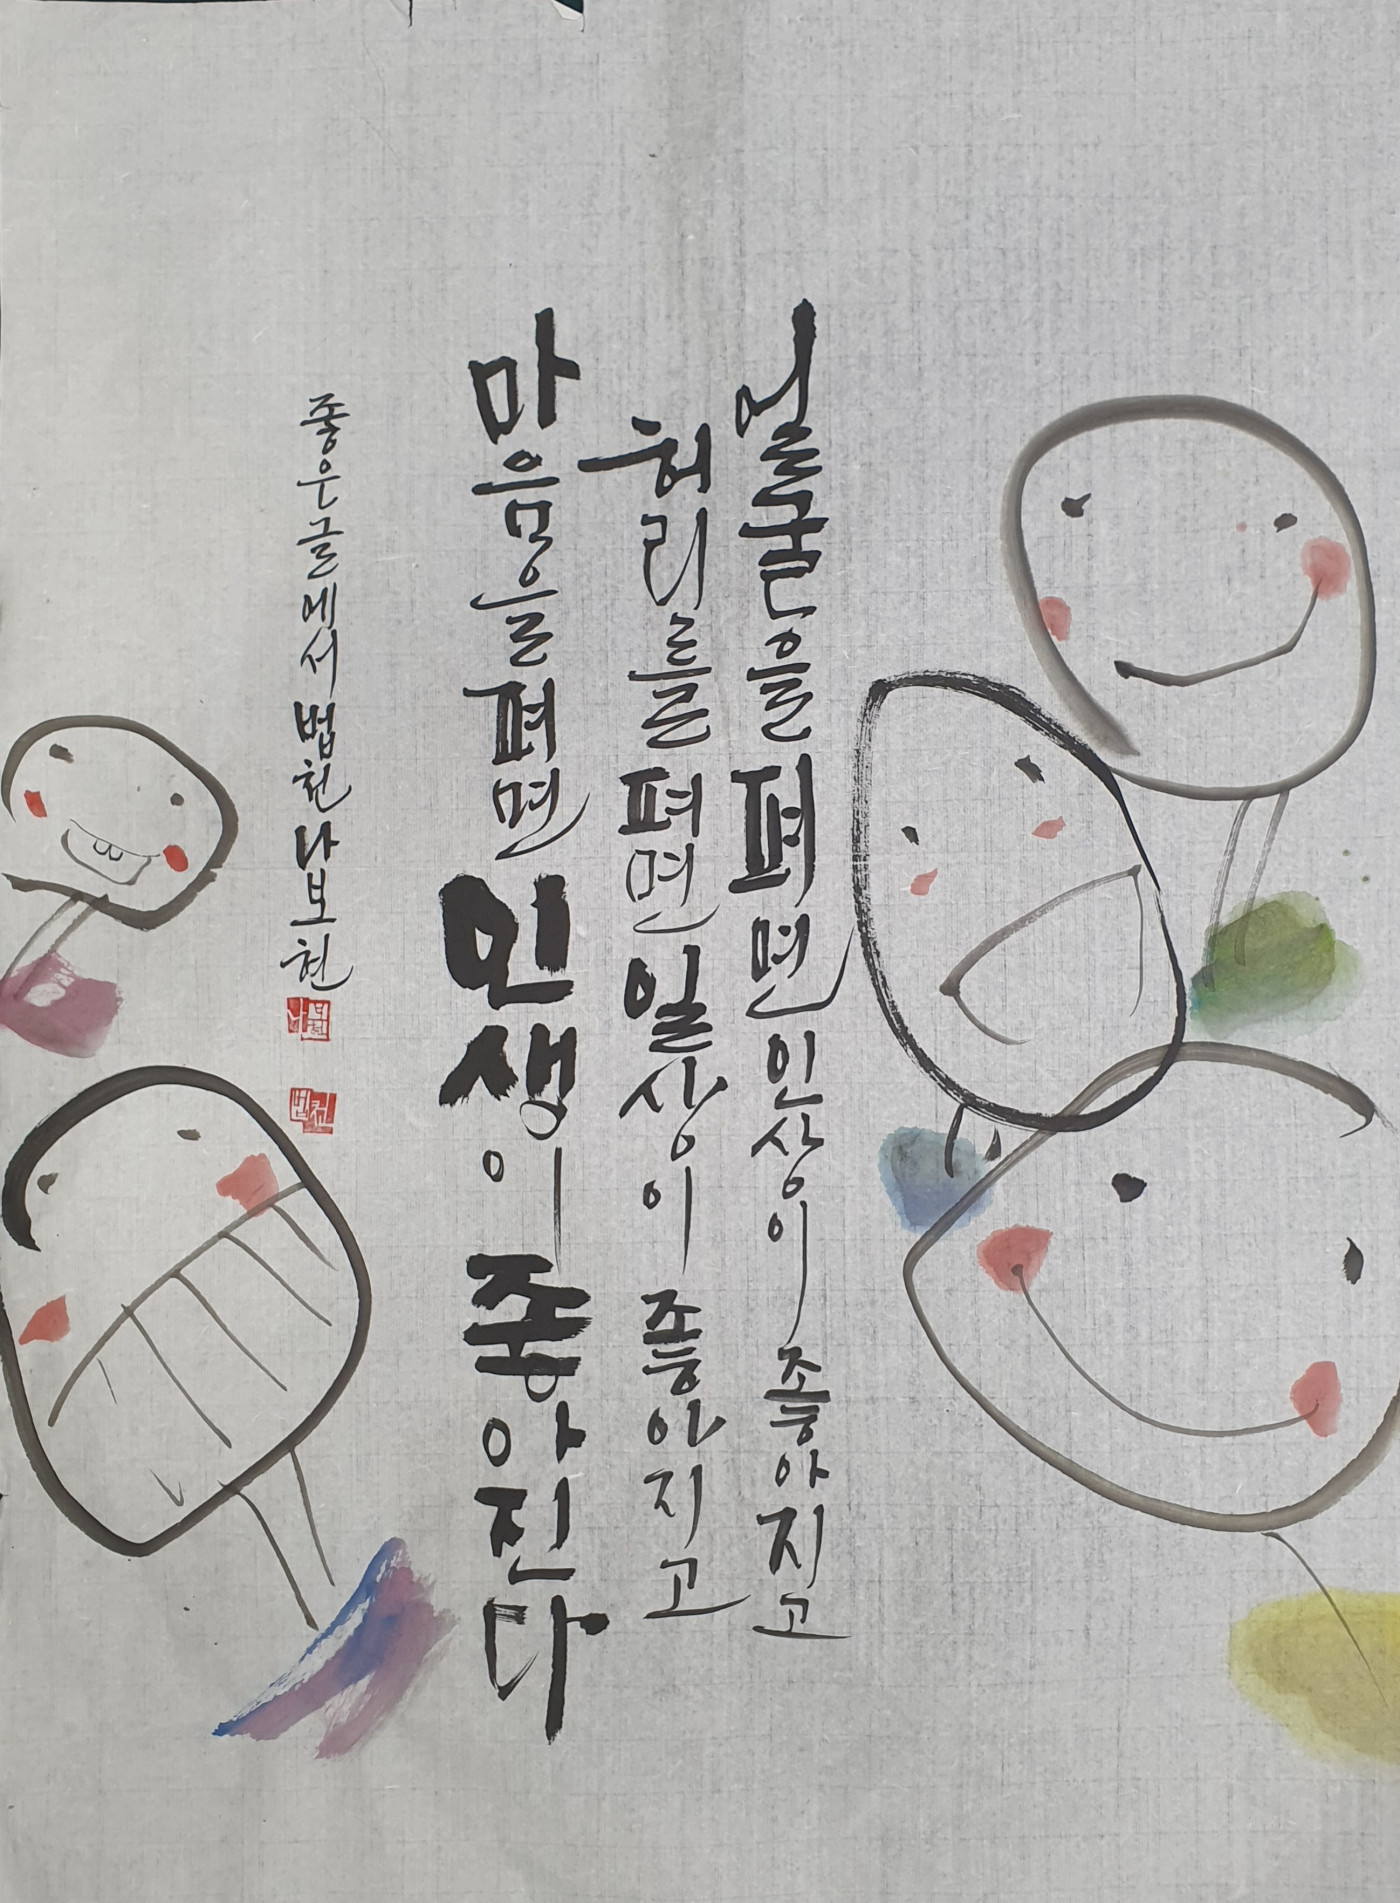 얼굴을 펴면 인상이 좋아지고
허리를 펴면 일상이 좋아지고
마음을 펴면 인생이 좋아진다
좋은글에서 법천 나보현